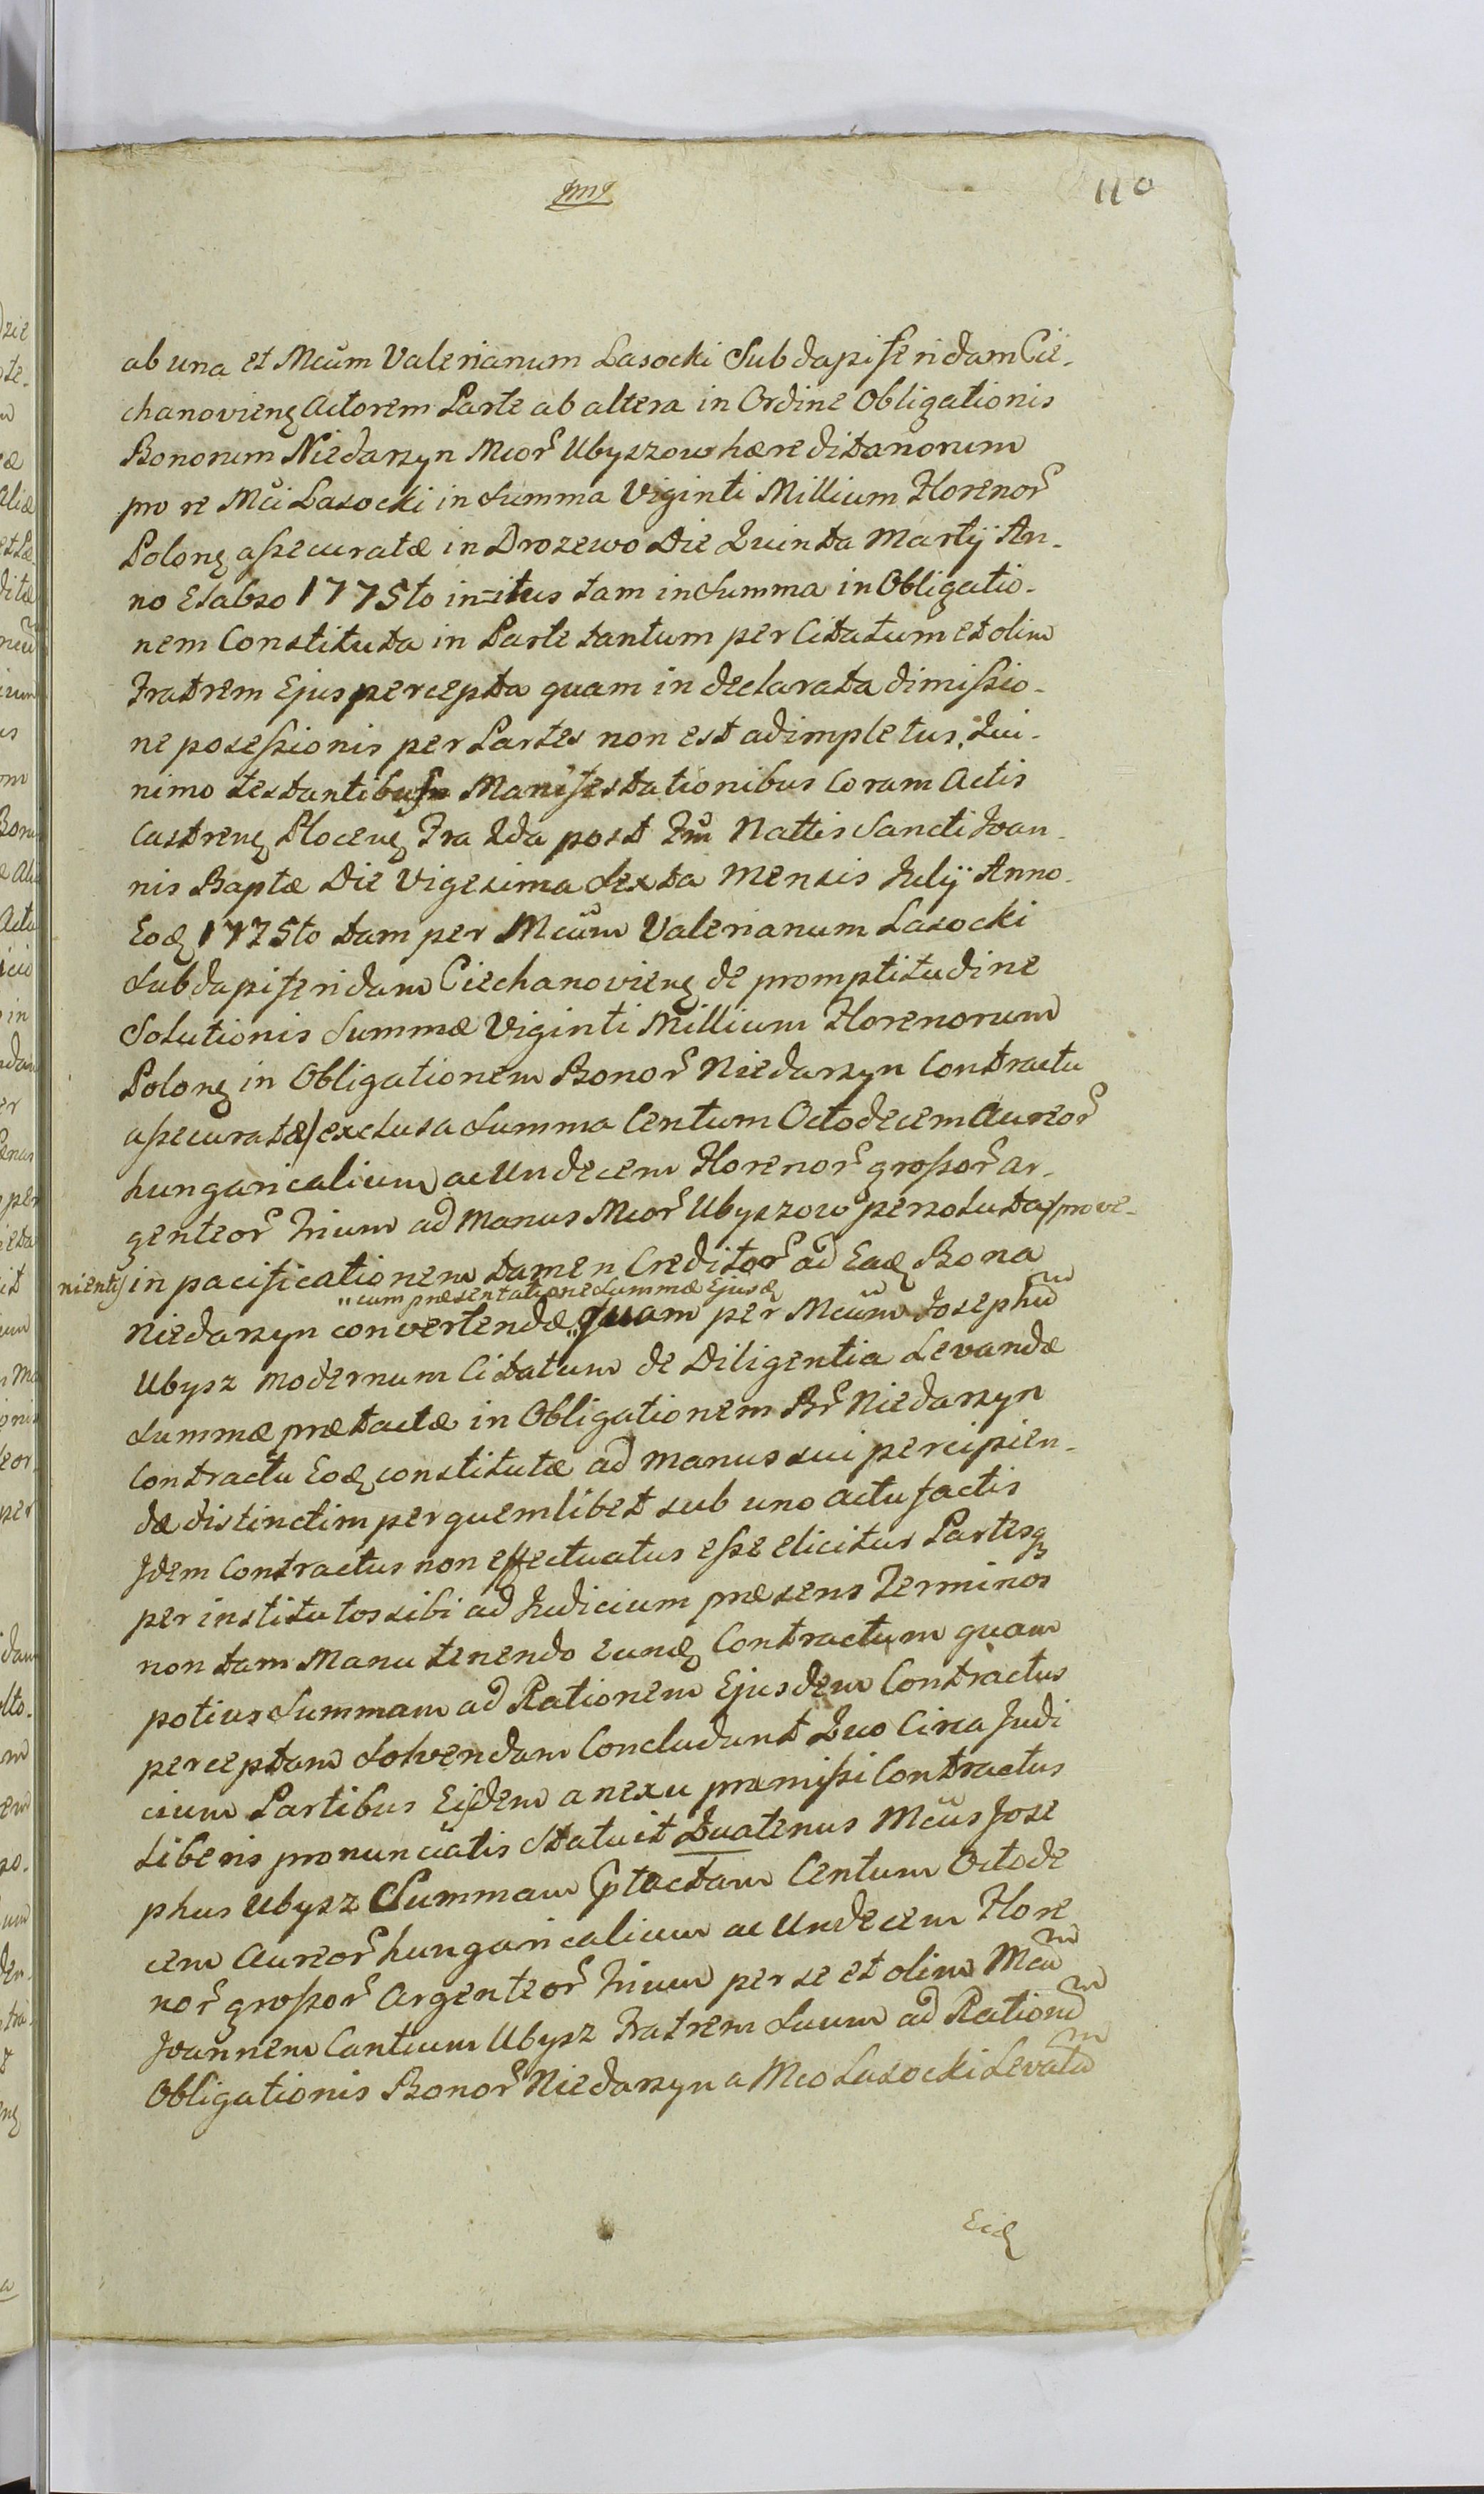 110
ab una et Mcūm Valerianum Lasocki Subdapiferidam Cie-
chanovieng Actorem Parte ab altera in Ordine Obligationis
Bonorum Niedarzyn Mcor̃ Ubyszow hæreditariorum
pro re Mci Lasocki in Summa Viginti Millium Florenor̃
Polong assecuratæ in Drozewo Die Quinta Martij An-
no Elabso 1775to initus tam in Summa in Obligatio-
nem Constituta in Parte tantum per Citatum et olim
Fratrem Ejus percepta quam in declarata dimissio-
ne posessionis per Partes non est adimpletus, Qui-
nimo testantibus Manifestationibus Coram Actis
Castreng Ploceng Fra 2da post Fm̃ Nattis Sancti Joan-
nis Baptæ Die Vigesima Sexta Mensis Julij Anno
Eoḋ 1775to tam per Mcūm Valerianum Lasocki
Subdapiferidam Ciechanovieng de promptitudine
Solutionis Summæ Viginti Millium Florenorum
Polong in Obligationem Bonor̃ Niedarzyn Contractu
assecuratæ /exclusa Summa Centum Octodecem Aureor̃
hungaricalium ac Undecem Florenor̃ grossor̃ ar-
genteor̃ Trium ad Manus Mcor̃ Ubyszow persoluta/ prove-
nientis/ in pacificationem tamen Creditor̃ ad Eaḋ Bona
"cum præsentatione Summæ Ejusḋ
Niedarzyn convertendæ" quam per Mcūm Josephū
Ubysz modernum Citatum de Diligentia Levandæ
Summæ prætactæ in Obligationem Br̃ Niedarzyn
Contractu Eoḋ constitutæ ad manus sui percipien-
dæ distinctim per quemlibet sub uno actu factis
Idem Contractus non effectuatus esse elicitus Partesq
per institutos sibi ad Judicium præsens Terminos
non tam Manu tenendo eunḋ Contractum quam
potius Summam ad Rationem Ejusdem Contractus
perceptam Solvendam Concludunt Quo Circa Judi
cium Partibus Eisdem a nexu præmissi Contractus
Liberis pronunciatis Statuit Quatenus Mcūs Jose
phus Ubysz Summam Ptactam Centum Octode
cem Aureor̃ hungaricalium ac Undecem Flore
nor̃ grossor̃ Argenteor̃ Trium per se et olim Mcū
Joannem Cantium Ubysz Fratrem Suum ad Rationē
Obligationis Bonor̃ Niedarzyn a Mco Lasocki Levatā
Eiḋ